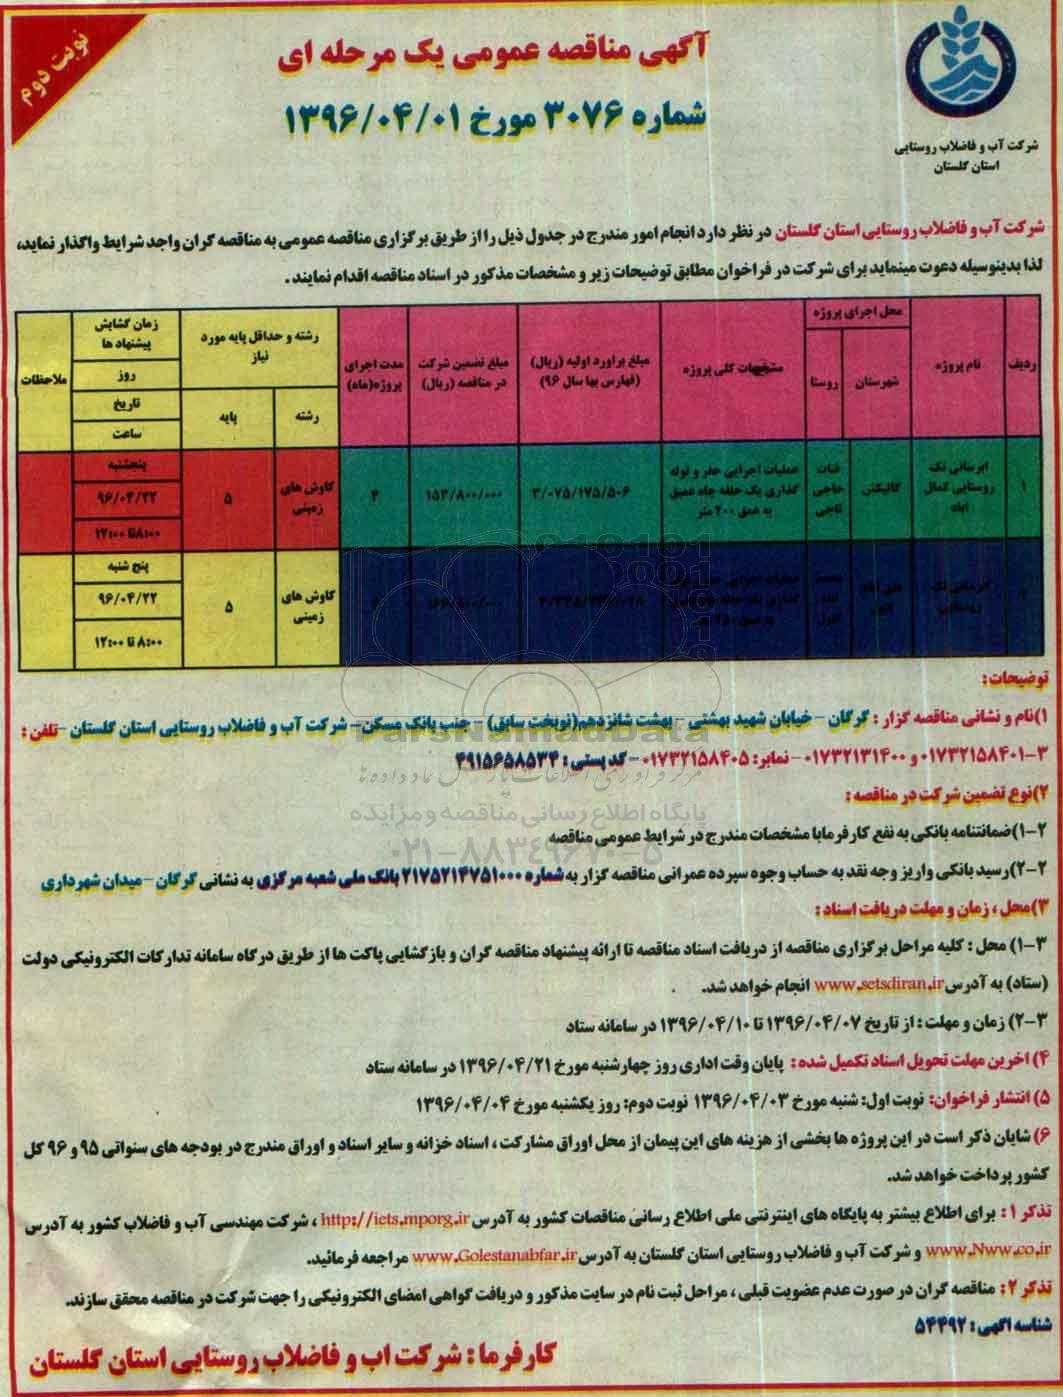 نوبت دوم
آگهی مناقصه عمومی یک مرحله ای
شماره ۳۰۷۶ مورخ ۱۳۹۶/۰۴/۰۱
شرکت آب و فاضلاب روستایی
استان گلستان
شرکت آب و فاضلاب روستایی استان گلستان در نظر دارد انجام امور مندرج در جدول ذیل را از طریق برگزاری مناقصه عمومی به مناقصه گران واجد شرایط واگذار نماید،
لذا بدینوسیله دعوت مینماید برای شرکت در فراخوان مطابق توضیحات زیر و مشخصات مذکور در اسناد مناقصه اقدام نمایند.
ردیف
نام پروژه
محل اجرای پروژه
شهرستان
روستا
مشخصات کلی پروژه
مبلغ براورد اولیه (ریال)
(فهارس بها سال ۹۶)
مبلغ تضمین شرکت
در مناقصه (ریال)
مدت اجرای
پروژه(ماه)
رشته و حداقل پایه مورد
نیاز
رشته
پایه
زمان گشایش
پیشنهاد ها
روز
تاریخ
ساعت
ملاحظات
۱
ابرسانی تک
روستایی کمال
اباد
گالیکش
قنات
حاجی
تاجی
عملیات اجرایی حفر و لوله
گذاری یک حلقه چاه عمیق
به عمق ۲۰۰ متر
۳/۰۷۵/۱۷۵/۵۰۶
۱۵۳/۸۰۰/۰۰۰
۴
کاوش های
زمینی
۵
پنجشنبه
۹۶/۰۴/۲۲
۸:۰۰تا ۱۲:۰۰
ابرسانی تک
روستایی
کاوش های
زمینی
۵
پنج شنبه
۹۶/۰۴/۲۲
۸:۰۰ تا ۱۲:۰۰
توضیحات:
۱)نام و نشانی مناقصه گزار : گرگان – خیابان شهید بهشتی – بهشت شانزدهم(نوبخت سابق) – جنب بانک مسکن– شرکت آب و فاضلاب روستایی استان گلستان –تلفن :
۳-۰۱۷۳۲۱۵۸۴۰۱ و ۰۱۷۳۲۱۳۱۴۰۰ – نمابر: ۰۱۷۳۲۱۵۸۴۰۵ – کد پستی : ۴۹۱۵۶۵۸۵۳۴
۲)نوع تضمین شرکت در مناقصه :
۲-۱)ضمانتنامه بانکی به نفع کارفرما با مشخصات مندرج در شرایط عمومی مناقصه
۲-۲)رسید بانکی واریز وجه نقد به حساب وجوه سپرده عمرانی مناقصه گزار به شماره ۲۱۷۵۲۱۴۷۵۱۰۰۰ بانک ملی شعبه مرکزی به نشانی گرگان – میدان شهرداری
۳)محل ، زمان و مهلت دریافت اسناد :
۳-۱) محل : کلیه مراحل برگزاری مناقصه از دریافت اسناد مناقصه تا ارائه پیشنهاد مناقصه گران و بازگشایی پاکت ها از طریق درگاه سامانه تدارکات الکترونیکی دولت
(ستاد) به آدرس www.setsdiran.ir انجام خواهد شد.
۳-۲) زمان و مهلت : از تاریخ ۱۳۹۶/۰۴/۰۷ تا ۱۳۹۶/۰۴/۱۰ در سامانه ستاد
۴) اخرین مهلت تحویل اسناد تکمیل شده : پایان وقت اداری روز چهارشنبه مورخ ۱۳۹۶/۰۴/۲۱ در سامانه ستاد
۵) انتشار فراخوان: نوبت اول: شنبه مورخ ۱۳۹۶/۰۴/۰۳ نوبت دوم: روز یکشنبه مورخ ۱۳۹۶/۰۴/۰۴
۶) شایان ذکر است در این پروژه ها بخشی از هزینه های این پیمان از محل اوراق مشارکت ، اسناد خزانه و سایر اسناد و اوراق مندرج در بودجه های سنواتی ۹۵ و ۹۶ کل
کشور پرداخت خواهد شد.
تذکر ۱ : برای اطلاع بیشتر به پایگاه های اینترنتی ملی اطلاع رسانی مناقصات کشور به آدرس http://iets.mporg.ir ، شرکت مهندسی آب و فاضلاب کشور به آدرس
www.Nww.co.ir و شرکت آب و فاضلاب روستایی استان گلستان به آدرس www.Golestanabfar.ir مراجعه فرمائید.
تذکر ۲ : مناقصه گران در صورت عدم عضویت قبلی ، مراحل ثبت نام در سایت مذکور و دریافت گواهی امضای الکترونیکی را جهت شرکت در مناقصه محقق سازند.
شناسه اگهی : ۵۴۴۹۲
کارفرما : شرکت اب و فاضلاب روستایی استان گلستان
ParsNamadData
پایگاه اطلاع رسانی مناقصه و مزایده
۰۲۱-۸۸۳۴۹۶۷۰-۵